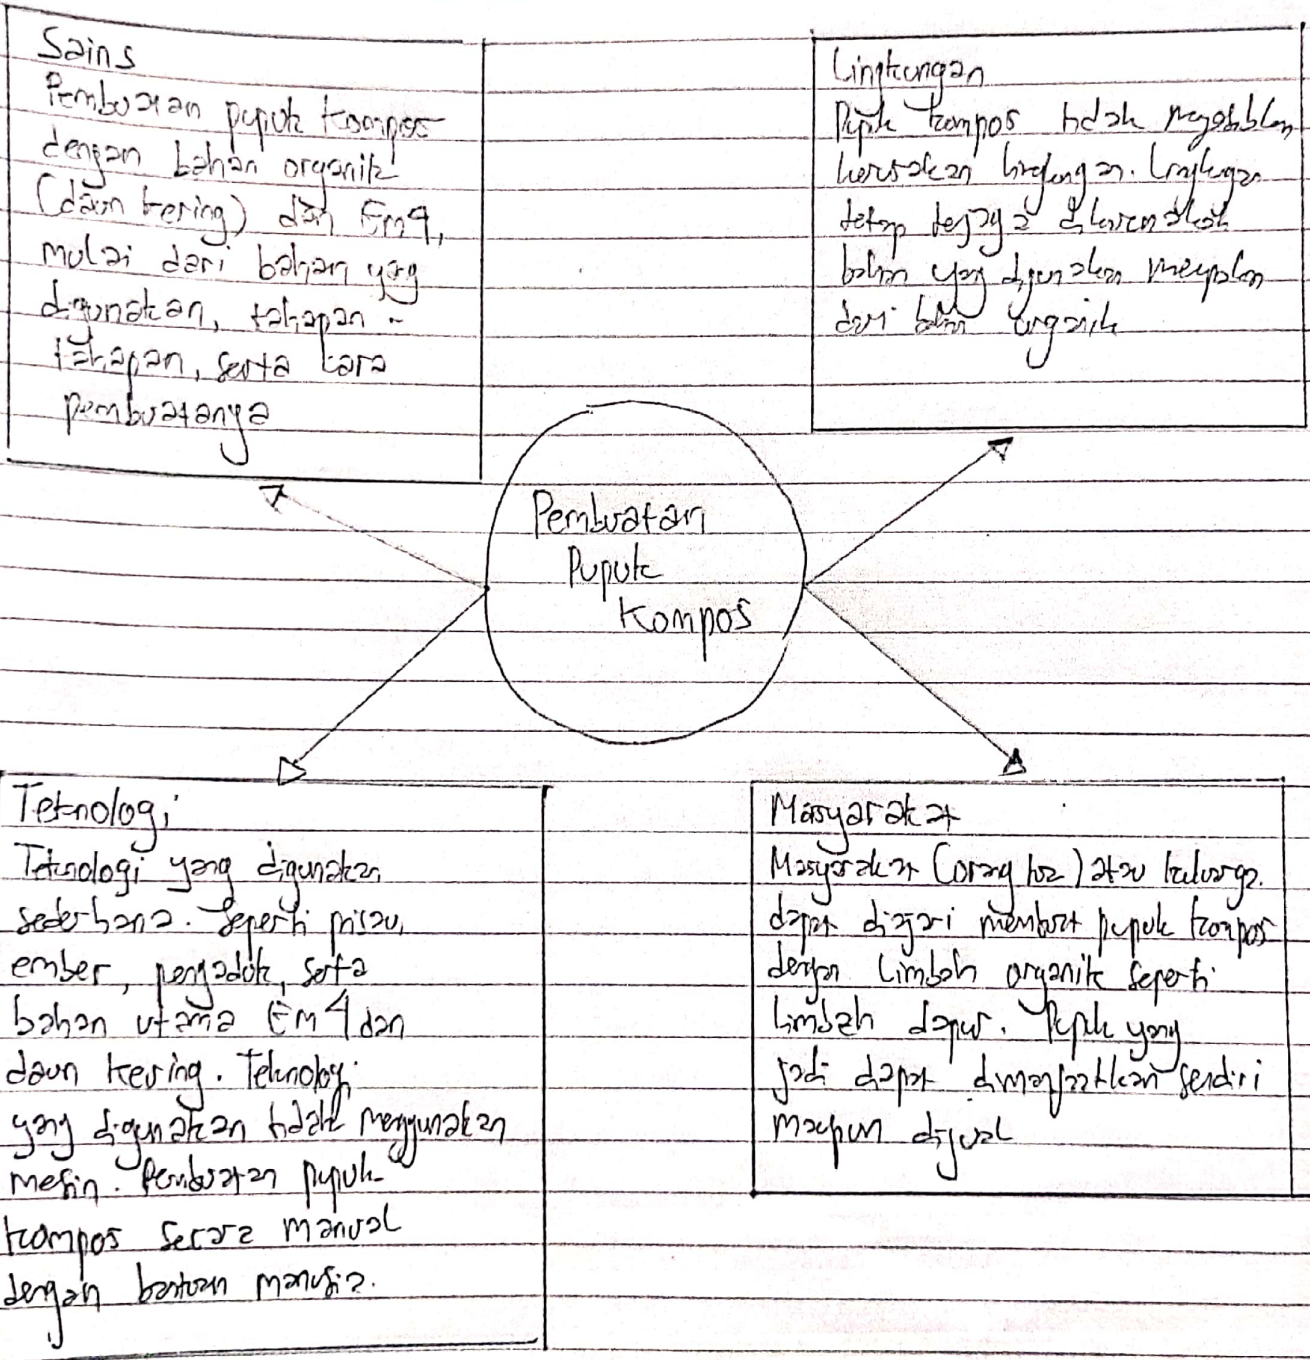 Sains
Pembuatan pupuk kompos
dengan bahan organik
(daun kering) dan Em4,
mulai dari bahan yang
digunakan, tahapan -
tahapan, serta cara
pembuatanya
Lingkungan
Pupuk kompos tidak
kerusakan lingkungan. Lingkungan
tetap terjaga dikarenakan
bahan yang digunakan merupakan
dari bahan organik
Pembuatan
Pupuk
Kompos
Teknologi
Teknologi yang digunakan
sederhana. Seperti pisau,
ember, pengaduk, serta
bahan utama Em4 dan
daun kering. Teknologi
yang digunakan tidak menggunakan
mesin. Pembuatan pupuk
kompos secara manual
dengan bantuan manusia.
Masyarakat
Masyarakat (orang tua) atau keluarga
dapat diajari membuat pupuk kompos
dengan limbah organik seperti
limbah dapur. Pupuk yang
jadi dapat dimanfaatkan sendiri
maupun dijual